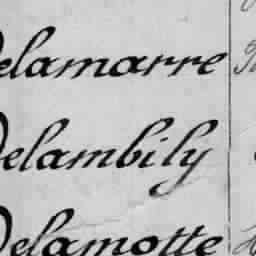 Delamarre
Delambily
Delamotte